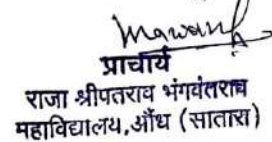 प्राचार्य
राजा श्रीपतराव भंगवंतराव
महाविद्यालय, औंध (सातारा)